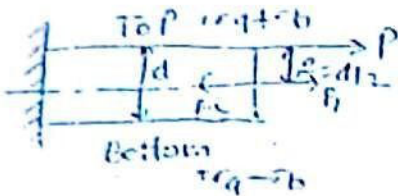 Top σa+σb
P
d
e=d/2
P1
Bottom
σa-σb